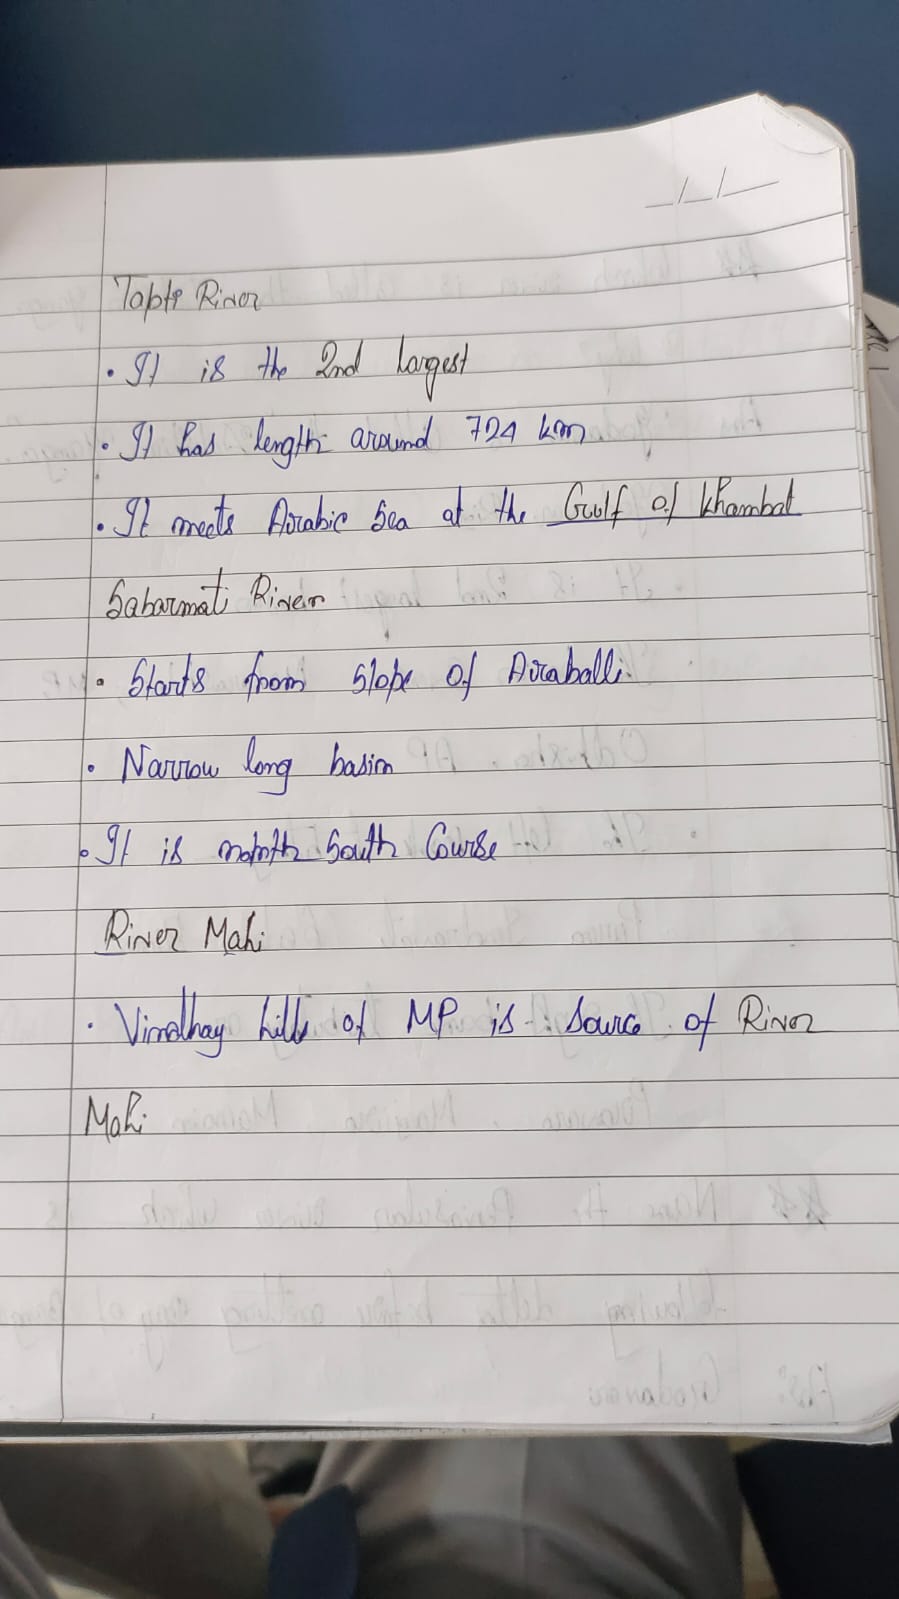 Tapti River
• It is the 2nd largest
• It has length around 724 km
• It meets Arabic Sea at the Gulf of Khambat
Sabarmati River
• Starts from slope of Aravalli.
• Narrow long basin
• It is north South Course
River Mahi
• Vindhay hills of MP is source of River
Mahi